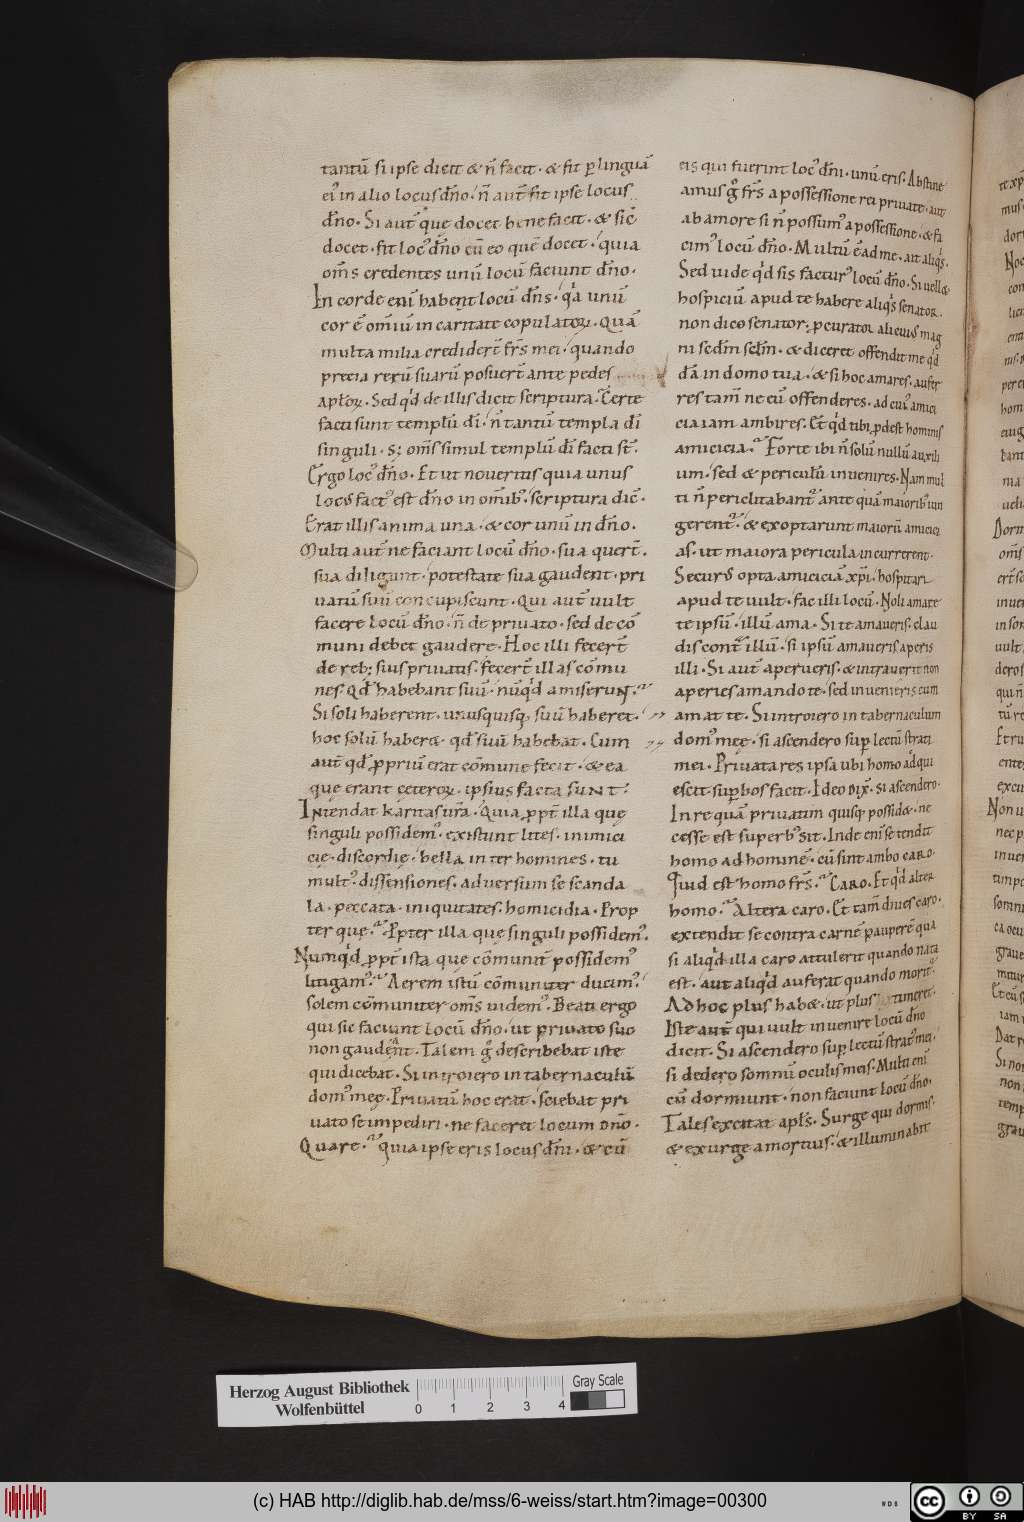 tantū si ipse dicit & n̄ facit · & fit ꝑ linguā
ei᾽ in alio locus dn̄o · n̄ aut̄ fit ipse locus
dn̄o · Si aut̄ que docet bene facit · & sic̄
docet · fit loc᾽ dn̄o cū eo quē docet · quia
om̄s credentes unū locū faciunt dn̄o ·
In corde eni habent locū dn̄s · q̇a unū
cor ē om̄iū in caritate copulatoꝝ · Quā
multa milia credider̄t frs̄ mei · quando
precia rerū suarū posuer̄t ante pedes
aplōꝝ · Sed qd̄ de illis dicit scriptura · Certe
facti sunt templū dī · n̄ tantū templa dī
singuli · s; om̄s simul templū dī facti st̄ ·
Ergo loc᾽ dn̄o · Et ut noueritis quia unus
locus fact᾽ est dn̄o in om̄ib᾽ · scriptura dic̄ ·
Erat illis anima una · & cor unū in dn̄o ·
Multi aut̄ ne faciant locū dn̄o · sua quer̄t ·
sua diligunt · potestate sua gaudent · pri
uatū suū concupiscunt · Qui aut̄ uult
facere locū dn̄o · n̄ de priuato · sed de cō
muni debet gaudere · Hoc illi fecer̄t
de reb; suis priuatis · fecer̄t illas cōmu
nes Qd̄ habebant suū · nūqd̄ amiserunt ·
Si soli haberent · unusquisq; suū haberet ·
hoc solū haber& · qd̄ suū habebat · Cum
aut̄ qd̄ ꝓpriū erat cōmune fecit · & ea
que erant ceteroꝝ · ipsius facta sunt ·
Intendat karitas ur̄a · Quia ꝓpt̄ illa que
singuli possidem᾽ · existunt lites · inimici
cie · discordie · bella inter homines · tu
mult᾽ · dissensiones · aduersum se scanda
la · peccata · iniquitates · homicidia · Prop
ter que · Pp̄ter illa que singuli possidem᾽ ·
Numqd̄ ꝓpt̄ ista que cōmunit̄ possidem᾽
litigam᾽ · Aerem istū cōmuniter ducim᾽ ·
solem cōmuniter om̄s uidem᾽ · Beati ergo
qui sic faciunt locū dn̄o · ut priuato suo
non gaudent · Talem g᾽ describebat iste
qui dicebat · Si introiero in tabernaculū
dom᾽ mee · Priuatū hoc erat · sciebat pri
uato se impediri · ne faceret locum dn̄o ·
Quare · quia ipse eris locus dn̄i · & cū
eis qui fuerint loc᾽ dn̄i · unū eris · Abstine
amus g᾽ frs̄ a possessione rei priuate · aut
ab amore si n̄ possum᾽ a possessione · & fa
cim᾽ locū dn̄o · Multū ē ad me · ait aliqs̄ ·
Sed uide qd̄ sis factur᾽ locū dn̄o · Si uell&
hospiciū apud te habere aliqs̄ senator ·
non dico senator; ꝓcurator alicuius mag
ni scd̄m sclm̄ · & diceret offendit me qd̄
dā in domo tua · & si hoc amares · aufer
res tam̄ ne eū offenderes · ad cui᾽ amici
cia iam ambires · Et qd̄ tibi ꝓdest hominis
amicicia · Forte ibi n̄ solū nullū auxili
um · sed & periculū inuenires · Nam mul
ti n̄ periclitabant᾽ ante quā maiorib᾽ iun
gerent᾽ · & exoptarunt maiorū amicici
as · ut maiora pericula incurrerent ·
Securus opta amiciciā xp̄i · hospitari
apud te uult · fac illi locū · Noli amare
te ipsū · illū ama · Si te amaueris · clau
dis cont̄ illū · si ipsū amaueris aperis
illi · Si aut̄ aperueris · & intrauerit non
aperies amando te · sed inuenieris cum
amat te · Si introiero in tabernaculum
dom᾽ mee · si ascendero sup lectū strati
mei · Priuata res ipsa ubi homo adqui
escit suꝑbos facit · Ideo dix̄ · si ascendero ·
In re quā priuatim quisq; possid& · ne
cesse est superb᾽ sit · Inde eni se tendit
homo ad hominē · cū sint ambo caro ·
Quid est homo frs̄ · Caro · Et qd̄ alter
homo · Altera caro · Et tam̄ diues caro ·
extendit se contra carnē pauperē qua
si aliqd̄ illa caro attulerit quando nata
est · aut aliqd̄ auferat quando morit᾽ ·
Ad hoc plus hab& · ut plus timeret ·
Iste aut̄ qui uult inuenire locū dn̄o
dicit · Si ascendero sup lectū strat᾽ mei ·
si dedero somnū oculis meis · Multi eni
cū dormiunt · non faciunt locū dn̄o ·
Tales excitat apls̄ · Surge qui dormis ·
& exurge a mortuis · & illuminabit
Herzog August Bibliothek
Wolfenbüttel
0 1 2 3 4
Gray Scale
(c) HAB http://diglib.hab.de/mss/6-weiss/start.htm?image=00300
cc BY SA